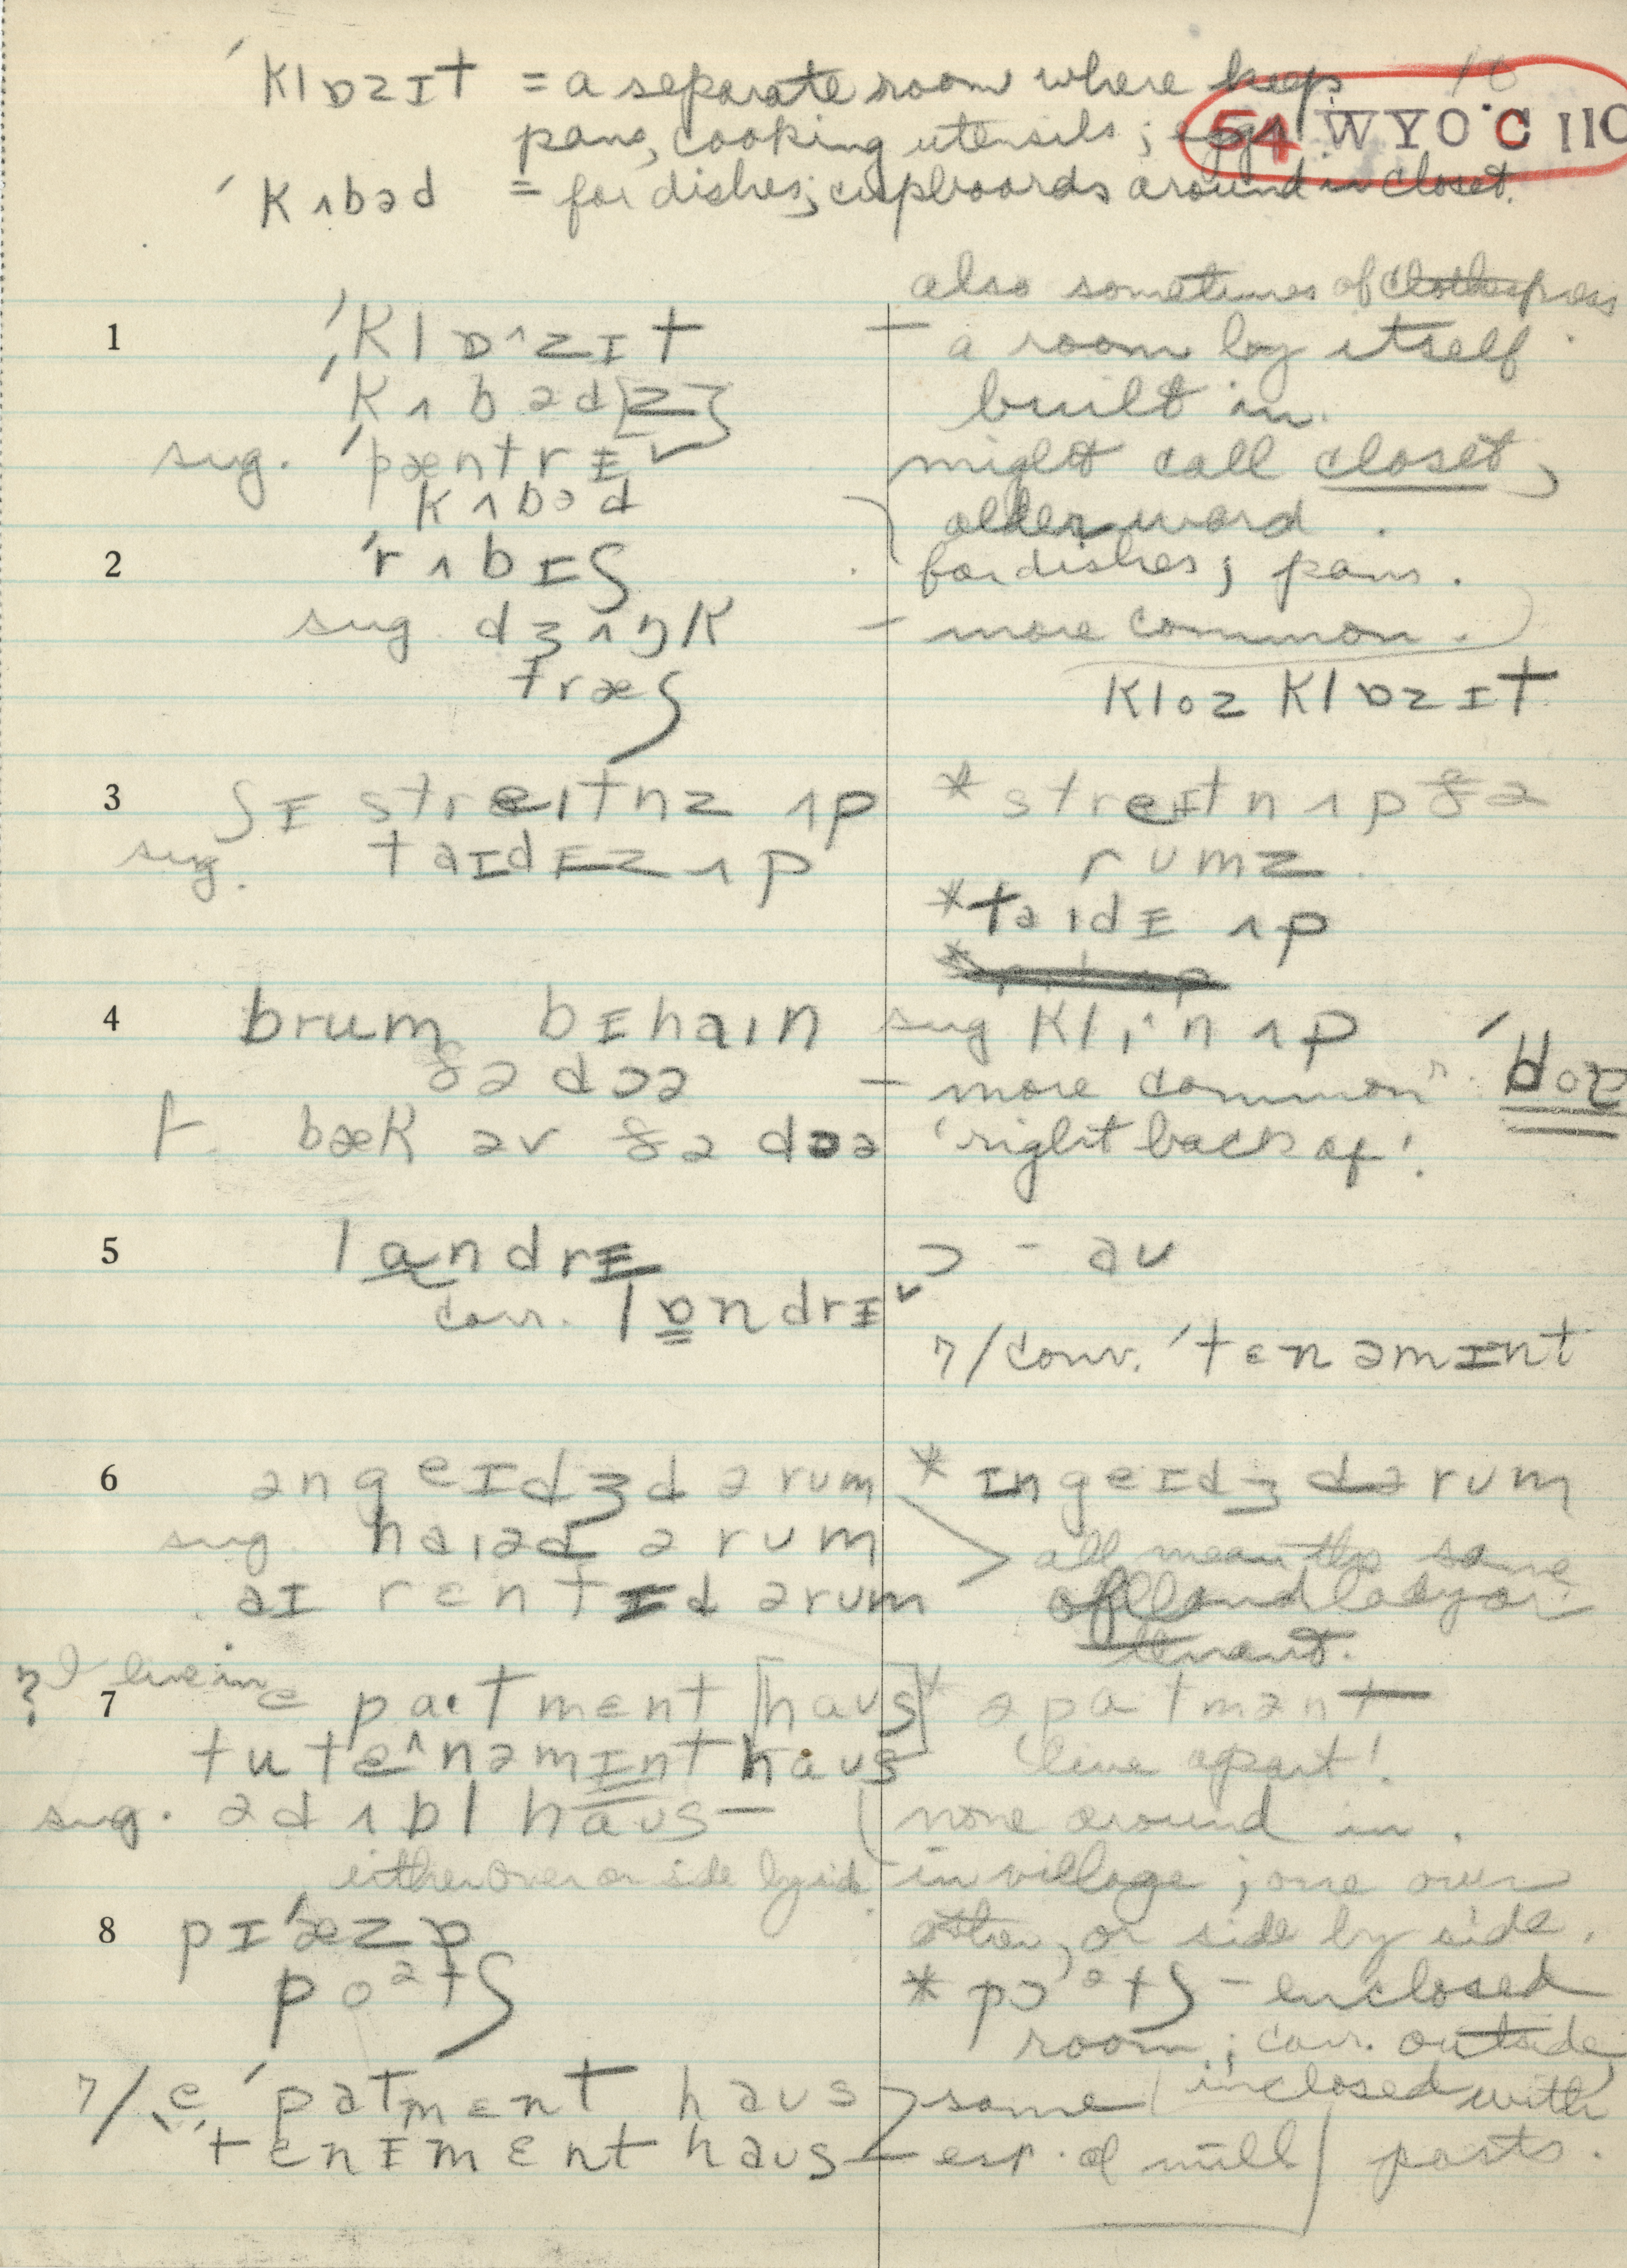 ˈklɒzɪt = a separate room where keep
54 WYO C 110
pans, cooking utensils; eggs
ˈkʌbəd = for dishes; cupboards around in closet.
also sometimes of clothespress
1 ˈklɒ^zɪt – a room by itself
ˈkʌbəd[z] built in.
sug. ˈpæntrɪ˅ might call closet,
kʌbəd older word.
2 ˈrʌbɪʃ for dishes; pans.
sug. dʒʌŋk – more common.
træʃ kloz klɒzɪt
3 ʃɪ streɪtnz ʌp * streɪtn ʌp ðə
sug. taɪdɪz ʌp rumz
*taɪdɪ ʌp
4 brum bɪhaɪn sug klɪ'n ʌp
ðə dɔə – more common
f. bæk əv ðə dɔə 'right back of'.
5 landrɪ ɔ – əu
corr. lɒndrɪ˅
7/conv. ˈtɛnəmɪnt
6 əngeɪdʒd ə rum * ɪngeɪdʒd ə rum
sug. haɪəd ə rum all mean the same
aɪ rɛntɪd ə rum of landlady or
tenant.
? I live in
7 e pa·tmɛnt [haus] * əpatmənt
tutɛ^nəmɪnt haus 'live apart'.
sug. ə dʌbl haus – none around in.
either over or side by side in village; one over
8 pɪˈæzɒ other, or side by side.
poᵊtʃ * pɔᵊtʃ – enclosed
room; corr. outside,
7/ e ˈpatmɛnt haus same inclosed with
tɛnɪmɛnt haus – esp. of mill posts.